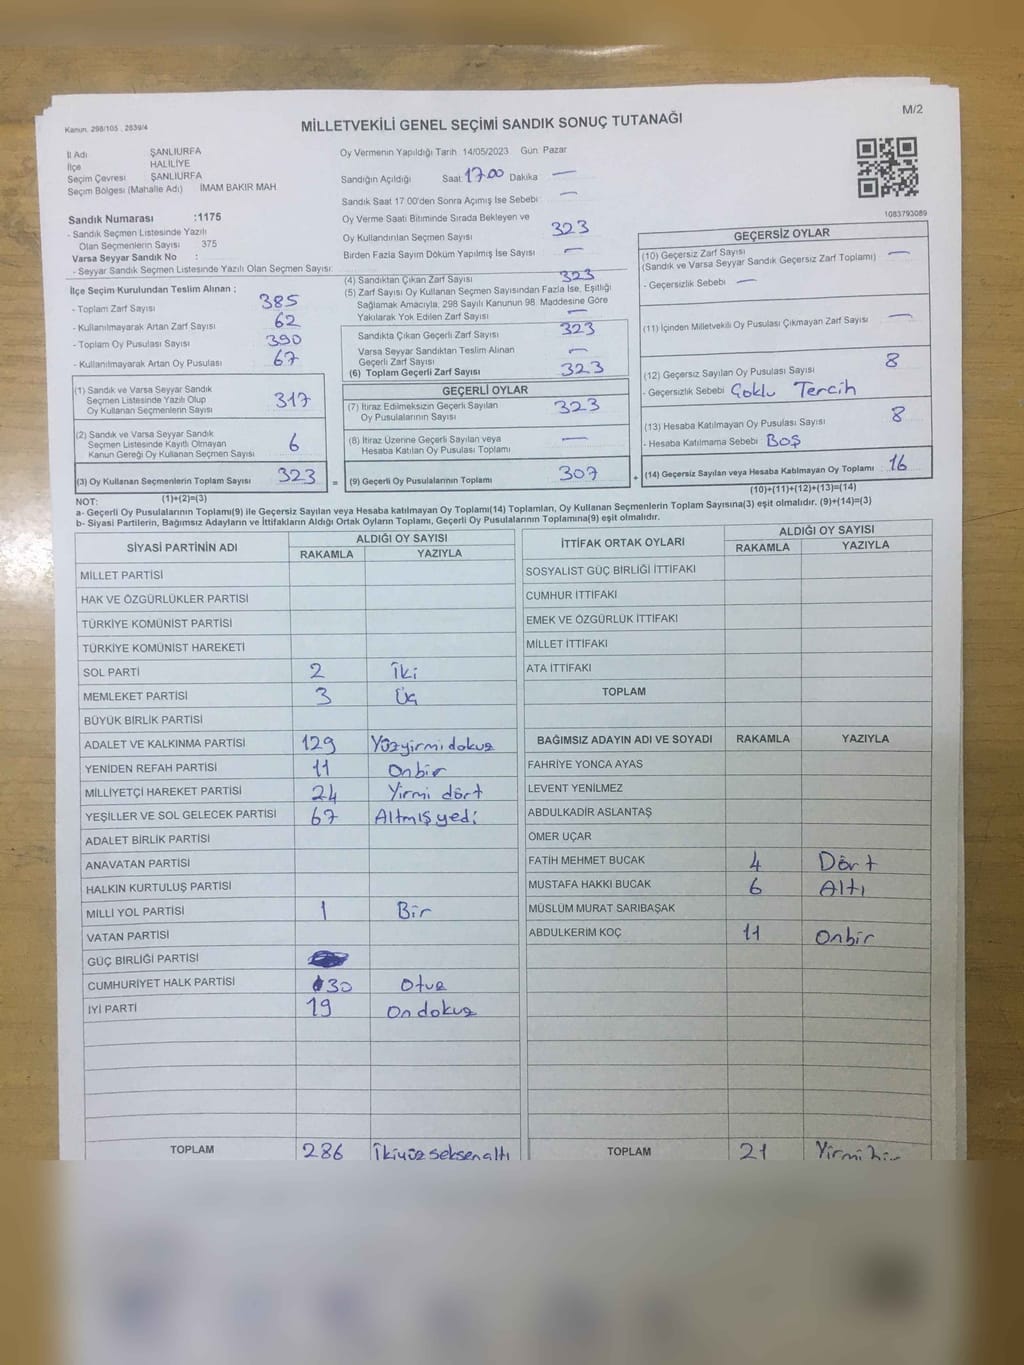 M/2
Kanun. 298/105 , 2839/4
MİLLETVEKİLİ GENEL SEÇİMİ SANDIK SONUÇ TUTANAĞI
İl Adı ŞANLIURFA
İlçe HALİLİYE
Seçim Çevresi ŞANLIURFA
Seçim Bölgesi (Mahalle Adı) İMAM BAKIR MAH
Sandık Numarası :1175
- Sandık Seçmen Listesinde Yazılı
Olan Seçmenlerin Sayısı 375
Varsa Seyyar Sandık No :
- Seyyar Sandık Seçmen Listesinde Yazılı Olan Seçmen Sayısı:
Oy Vermenin Yapıldığı Tarih 14/05/2023 Gün Pazar
Sandığın Açıldığı Saat 17.00 Dakika —
Sandık Saat 17 00'den Sonra Açımış İse Sebebi —
Oy Verme Saati Bitiminde Sırada Bekleyen ve
Oy Kullandırılan Seçmen Sayısı 323
Birden Fazla Sayım Döküm Yapılmış İse Sayısı —
1083793089
İlçe Seçim Kurulundan Teslim Alınan ;
- Toplam Zarf Sayısı 385
- Kullanılmayarak Artan Zarf Sayısı 62
- Toplam Oy Pusulası Sayısı 390
- Kullanılmayarak Artan Oy Pusulası 67
(1) Sandık ve Varsa Seyyar Sandık
Seçmen Listesinde Yazılı Olup
Oy Kullanan Seçmenlerin Sayısı 317
(2) Sandık ve Varsa Seyyar Sandık
Seçmen Listesinde Kayıtlı Olmayan
Kanun Gereği Oy Kullanan Seçmen Sayısı 6
(3) Oy Kullanan Seçmenlerin Toplam Sayısı 323
(1)+(2)=(3)
(4) Sandıktan Çıkan Zarf Sayısı 323
(5) Zarf Sayısı Oy Kullanan Seçmen Sayısından Fazla İse, Eşitliği
Sağlamak Amacıyla, 298 Sayılı Kanunun 98. Maddesine Göre
Yakılarak Yok Edilen Zarf Sayısı —
Sandıkta Çıkan Geçerli Zarf Sayısı 323
Varsa Seyyar Sandıktan Teslim Alınan
Geçerli Zarf Sayısı —
(6) Toplam Geçerli Zarf Sayısı 323
GEÇERLİ OYLAR
(7) İtiraz Edilmeksizin Geçerli Sayılan
Oy Pusulalarının Sayısı 323
(8) İtiraz Üzerine Geçerli Sayılan veya
Hesaba Katılan Oy Pusulası Toplamı —
= (9) Geçerli Oy Pusulalarının Toplamı 307
GEÇERSİZ OYLAR
(10) Geçersiz Zarf Sayısı
(Sandık ve Varsa Seyyar Sandık Geçersiz Zarf Toplamı) —
- Geçersizlik Sebebi —
(11) İçinden Milletvekili Oy Pusulası Çıkmayan Zarf Sayısı —
(12) Geçersiz Sayılan Oy Pusulası Sayısı 8
- Geçersizlik Sebebi Çoklu Tercih
(13) Hesaba Katılmayan Oy Pusulası Sayısı 8
- Hesaba Katılmama Sebebi BOŞ
+ (14) Geçersiz Sayılan veya Hesaba Katılmayan Oy Toplamı 16
(10)+(11)+(12)+(13)=(14)
NOT:
a- Geçerli Oy Pusulalarının Toplamı(9) ile Geçersiz Sayılan veya Hesaba katılmayan Oy Toplamı(14) Toplamları, Oy Kullanan Seçmenlerin Toplam Sayısına(3) eşit olmalıdır. (9)+(14)=(3)
b- Siyasi Partilerin, Bağımsız Adayların ve İttifakların Aldığı Ortak Oyların Toplamı, Geçerli Oy Pusulalarının Toplamına(9) eşit olmalıdır.
SİYASİ PARTİNİN ADI ALDIĞI OY SAYISI
RAKAMLA YAZIYLA
MİLLET PARTİSİ
HAK VE ÖZGÜRLÜKLER PARTİSİ
TÜRKİYE KOMÜNİST PARTİSİ
TÜRKİYE KOMÜNİST HAREKETİ
SOL PARTİ 2 İki
MEMLEKET PARTİSİ 3 Üç
BÜYÜK BİRLİK PARTİSİ
ADALET VE KALKINMA PARTİSİ 129 Yüzyirmi dokuz
YENİDEN REFAH PARTİSİ 11 Onbir
MİLLİYETÇİ HAREKET PARTİSİ 24 Yirmi dört
YEŞİLLER VE SOL GELECEK PARTİSİ 67 Altmış yedi
ADALET BİRLİK PARTİSİ
ANAVATAN PARTİSİ
HALKIN KURTULUŞ PARTİSİ
MİLLİ YOL PARTİSİ 1 Bir
VATAN PARTİSİ
GÜÇ BİRLİĞİ PARTİSİ
CUMHURİYET HALK PARTİSİ 30 Otuz
İYİ PARTİ 19 On dokuz
TOPLAM 286 İkiyüz seksenaltı
İTTİFAK ORTAK OYLARI ALDIĞI OY SAYISI
RAKAMLA YAZIYLA
SOSYALIST GÜÇ BİRLİĞİ İTTİFAKI
CUMHUR İTTİFAKI
EMEK VE ÖZGÜRLÜK İTTİFAKI
MİLLET İTTİFAKI
ATA İTTİFAKI
TOPLAM
BAĞIMSIZ ADAYIN ADI VE SOYADI RAKAMLA YAZIYLA
FAHRİYE YONCA AYAS
LEVENT YENİLMEZ
ABDULKADİR ASLANTAŞ
ÖMER UÇAR
FATİH MEHMET BUCAK 4 Dört
MUSTAFA HAKKI BUCAK 6 Altı
MÜSLÜM MURAT SARIBAŞAK
ABDULKERİM KOÇ 11 Onbir
TOPLAM 21 Yirmi bir